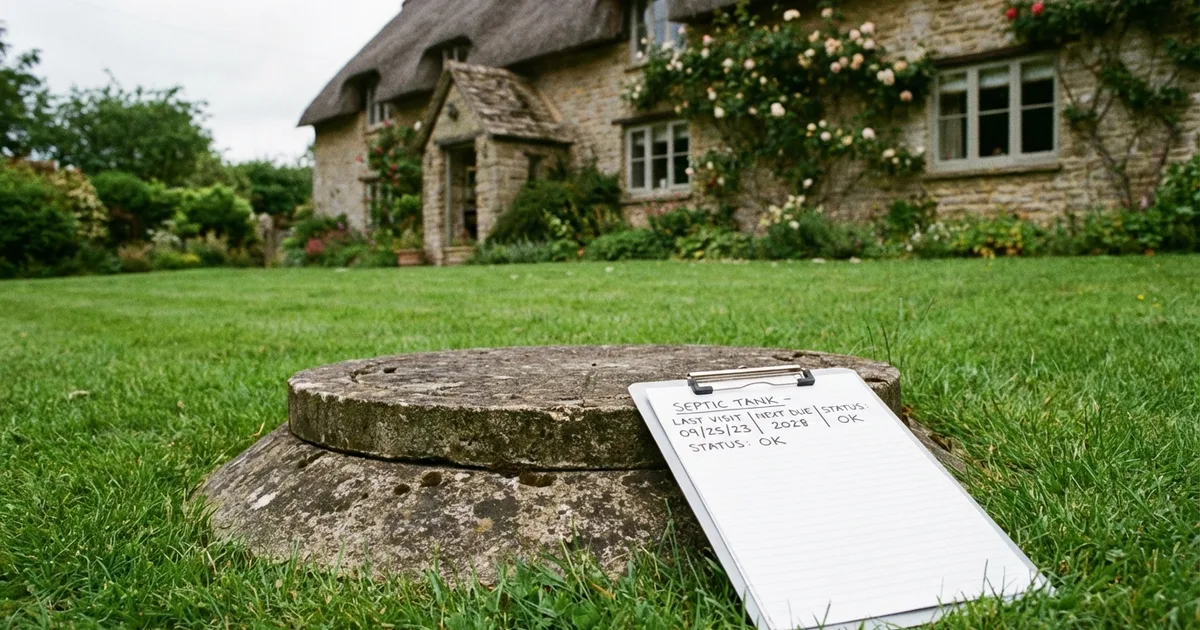 SEPTIC TANK -
LAST VISIT | NEXT DUE | STATUS:
09/25/23 2028 OK
STATUS: OK